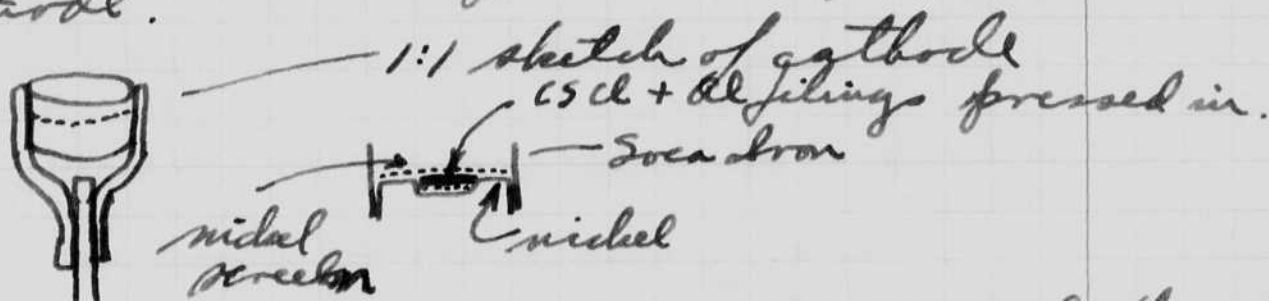 1:1 sketch of cathode
CsCl + Al filings pressed in.
Svea Iron
nickel
screen
nickel